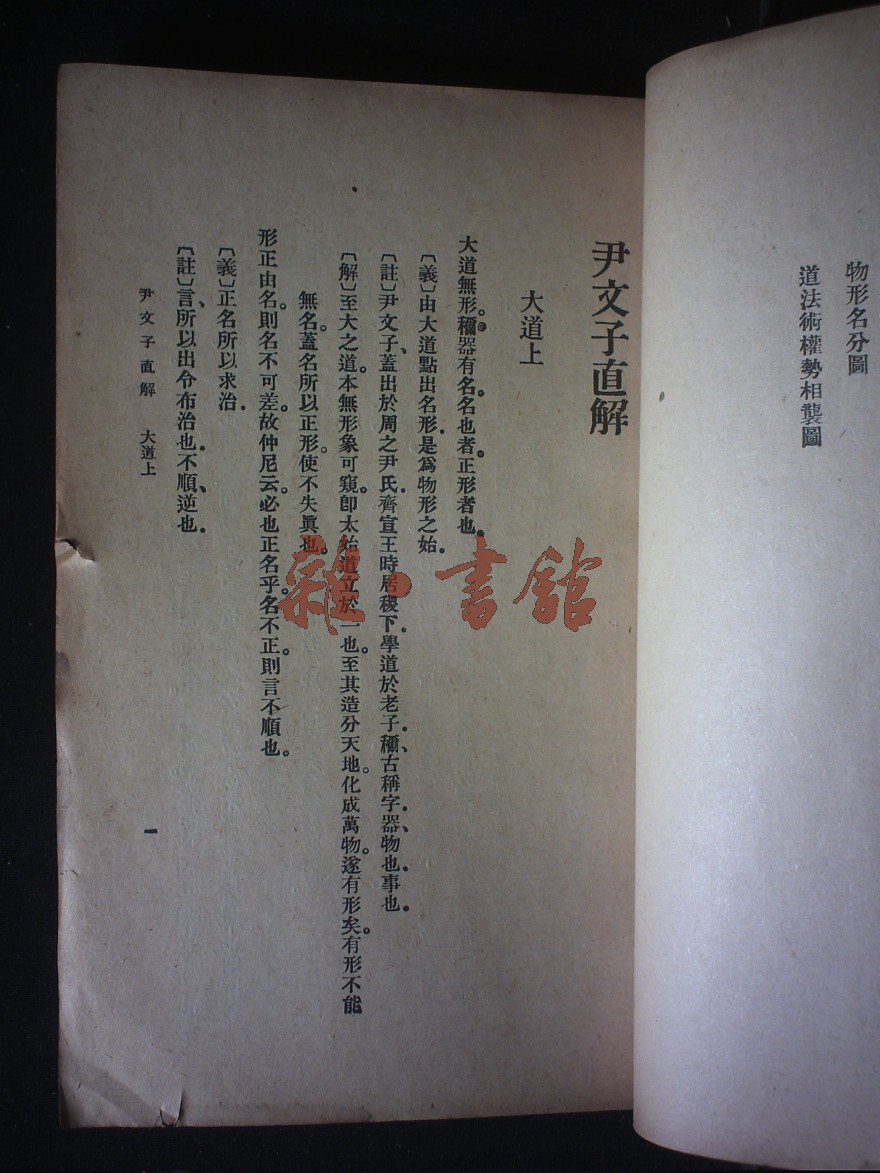 物形名分圖
道法術權勢相襲圖
尹文子直解
大道上
大道無形。稱器有名。名也者。正形者也。
〔義〕由大道點出名形.是爲物形之始.
〔註〕尹文子、蓋出於周之尹氏.齊宣王時居稷下.學道於老子.稱、古稱字.器、物也.事也.
〔解〕至大之道。本無形象可窺。卽太始道立於一也。至其造分天地。化成萬物。遂有形矣。有形不能
無名。蓋名所以正形。使不失眞也。
形正由名。則名不可差。故仲尼云。必也正名乎。名不正。則言不順也。
〔義〕正名所以求治.
〔註〕言、所以出令布治也.不順、逆也.
尹文子直解 大道上
一
雜·書館